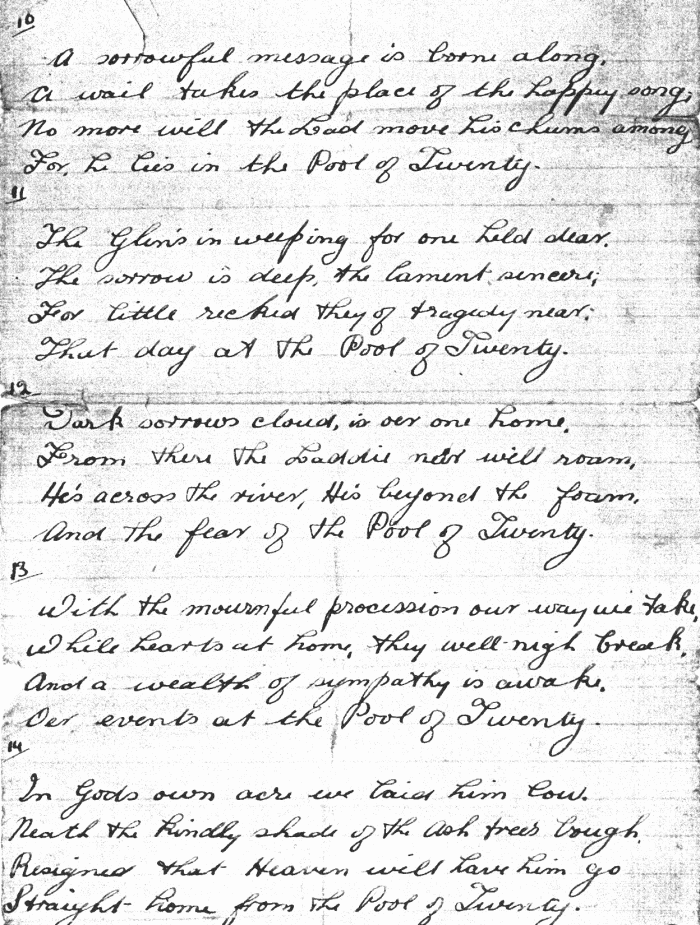 10
A sorrowful message is borne along.
A wail takes the place of the happy song;
No more will the Lad move his chums among
For, he lies in the Pool of Twenty.
11
The Glin's in weeping for one held dear.
The sorrow is deep, the lament sincere;
For little recked they of tragedy near;
That day at the Pool of Twenty.
12
Dark sorrows cloud, is oer one home.
From there the Laddie neer will roam,
He's across the river, He's beyond the foam.
And the fear of the Pool of Twenty.
13
With the mournful procession our way we take,
While hearts at home, they well-nigh break.
And a wealth of sympathy is awake.
Oer events at the Pool of Twenty.
14
In Gods own acre we laid him low.
Neath the kindly shade of the Ash trees bough.
Resigned that Heaven will have him go
Straight home from the Pool of Twenty.